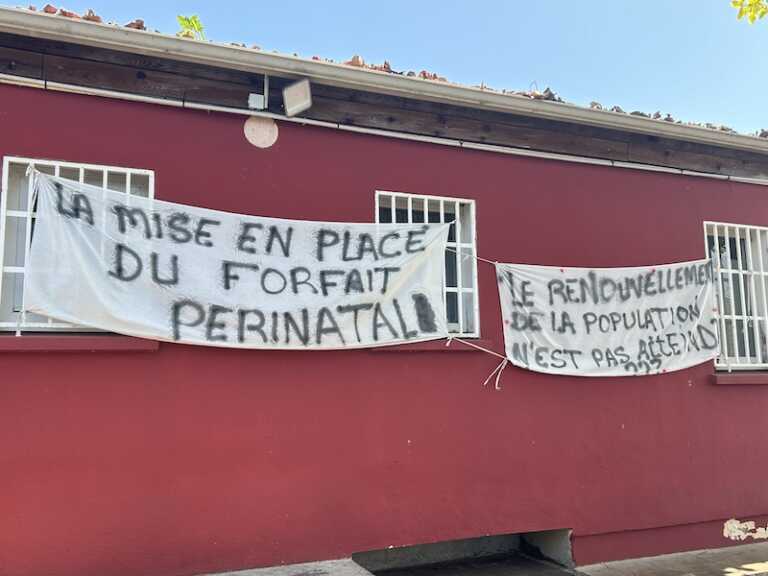 LA MISE EN PLACE
DU FORFAIT
PERINATAL
LE RENOUVELLEMENT
DE LA POPULATION
N'EST PAS
???